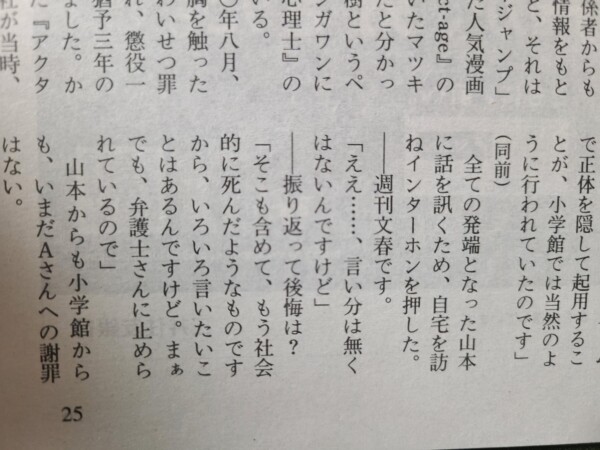 係者からも
情報をもと
と、それは
ジャンプ」
た人気漫画
ctage』の
いたマツキ
たと分かっ
樹というペ
ンガワンに
心理士』の
いる。
〇年八月、
胸を触った
わいせつ罪
れ、懲役一
猶予三年の
ました。か
た『アクタ
社が当時、
で正体を隠して起用するこ
とが、小学館では当然のよ
うに行われていたのです」
(同前)
全ての発端となった山本
に話を訊くため、自宅を訪
ねインターホンを押した。
――週刊文春です。
「ええ……、言い分は無く
はないんですけど」
――振り返って後悔は?
「そこも含めて、もう社会
的に死んだようなものです
から、いろいろ言いたいこ
とはあるんですけど。まぁ
でも、弁護士さんに止めら
れているので」
山本からも小学館から
も、いまだAさんへの謝罪
はない。
25